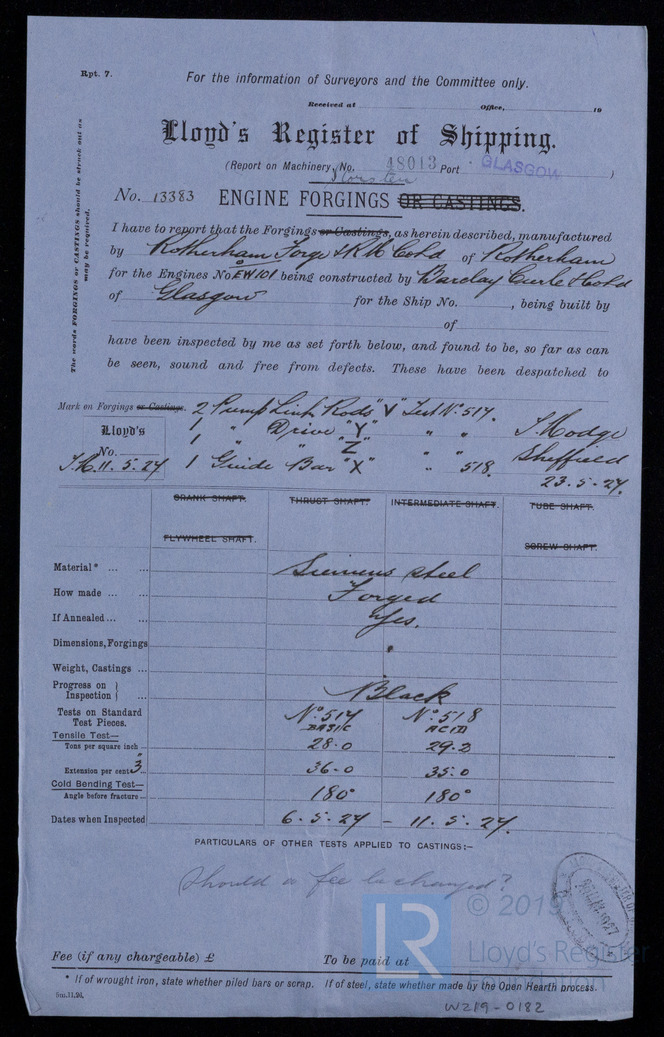 Rpt. 7.
For the information of Surveyors and the Committee only.
Received at Office, 19
Lloyd's Register of Shipping.
(Report on Machinery, No. 48013 Port GLASGOW )
No. 13383 ENGINE FORGINGS OR CASTINGS.
The words FORGINGS or CASTINGS should be struck out as
may be required.
I have to report that the Forgings or Castings, as herein described, manufactured
by Rotherham Forge & R.M. Co Ld of Rotherham
for the Engines No EW101 being constructed by Barclay Curle & Co Ld
of Glasgow for the Ship No. , being built by
of
have been inspected by me as set forth below, and found to be, so far as can
be seen, sound and free from defects. These have been despatched to
Mark on Forgings or Castings. 2 Pump Link Rods "V" Test No. 517.
1 " Drive "Y" " "
1 " "Z" " "
1 Guide Bar "X" " 518.
Lloyd's
No.
11.5.27
Sheffield
23.5.27.
CRANK SHAFT. THRUST SHAFT. INTERMEDIATE SHAFT. TUBE SHAFT.
FLYWHEEL SHAFT. SCREW SHAFT.
Material* ... ... Siemens steel
How made ... ... Forged
If Annealed... ... Yes.
Dimensions, Forgings
Weight, Castings ...
Progress on Inspection } Black
Tests on Standard Test Pieces. No. 517 BASIC No. 518 ACID
Tensile Test—
Tons per square inch 28.0 29.2
Extension per cent 3" 36.0 35.0
Cold Bending Test—
Angle before fracture— 180° 180°
Dates when Inspected 6.5.27 – 11.5.27.
PARTICULARS OF OTHER TESTS APPLIED TO CASTINGS:—
Should a fee be charged?
© 2019
LR
Lloyd's Register
Foundation
Fee (if any chargeable) £ To be paid at
* If of wrought iron, state whether piled bars or scrap. If of steel, state whether made by the Open Hearth process.
W219-0182